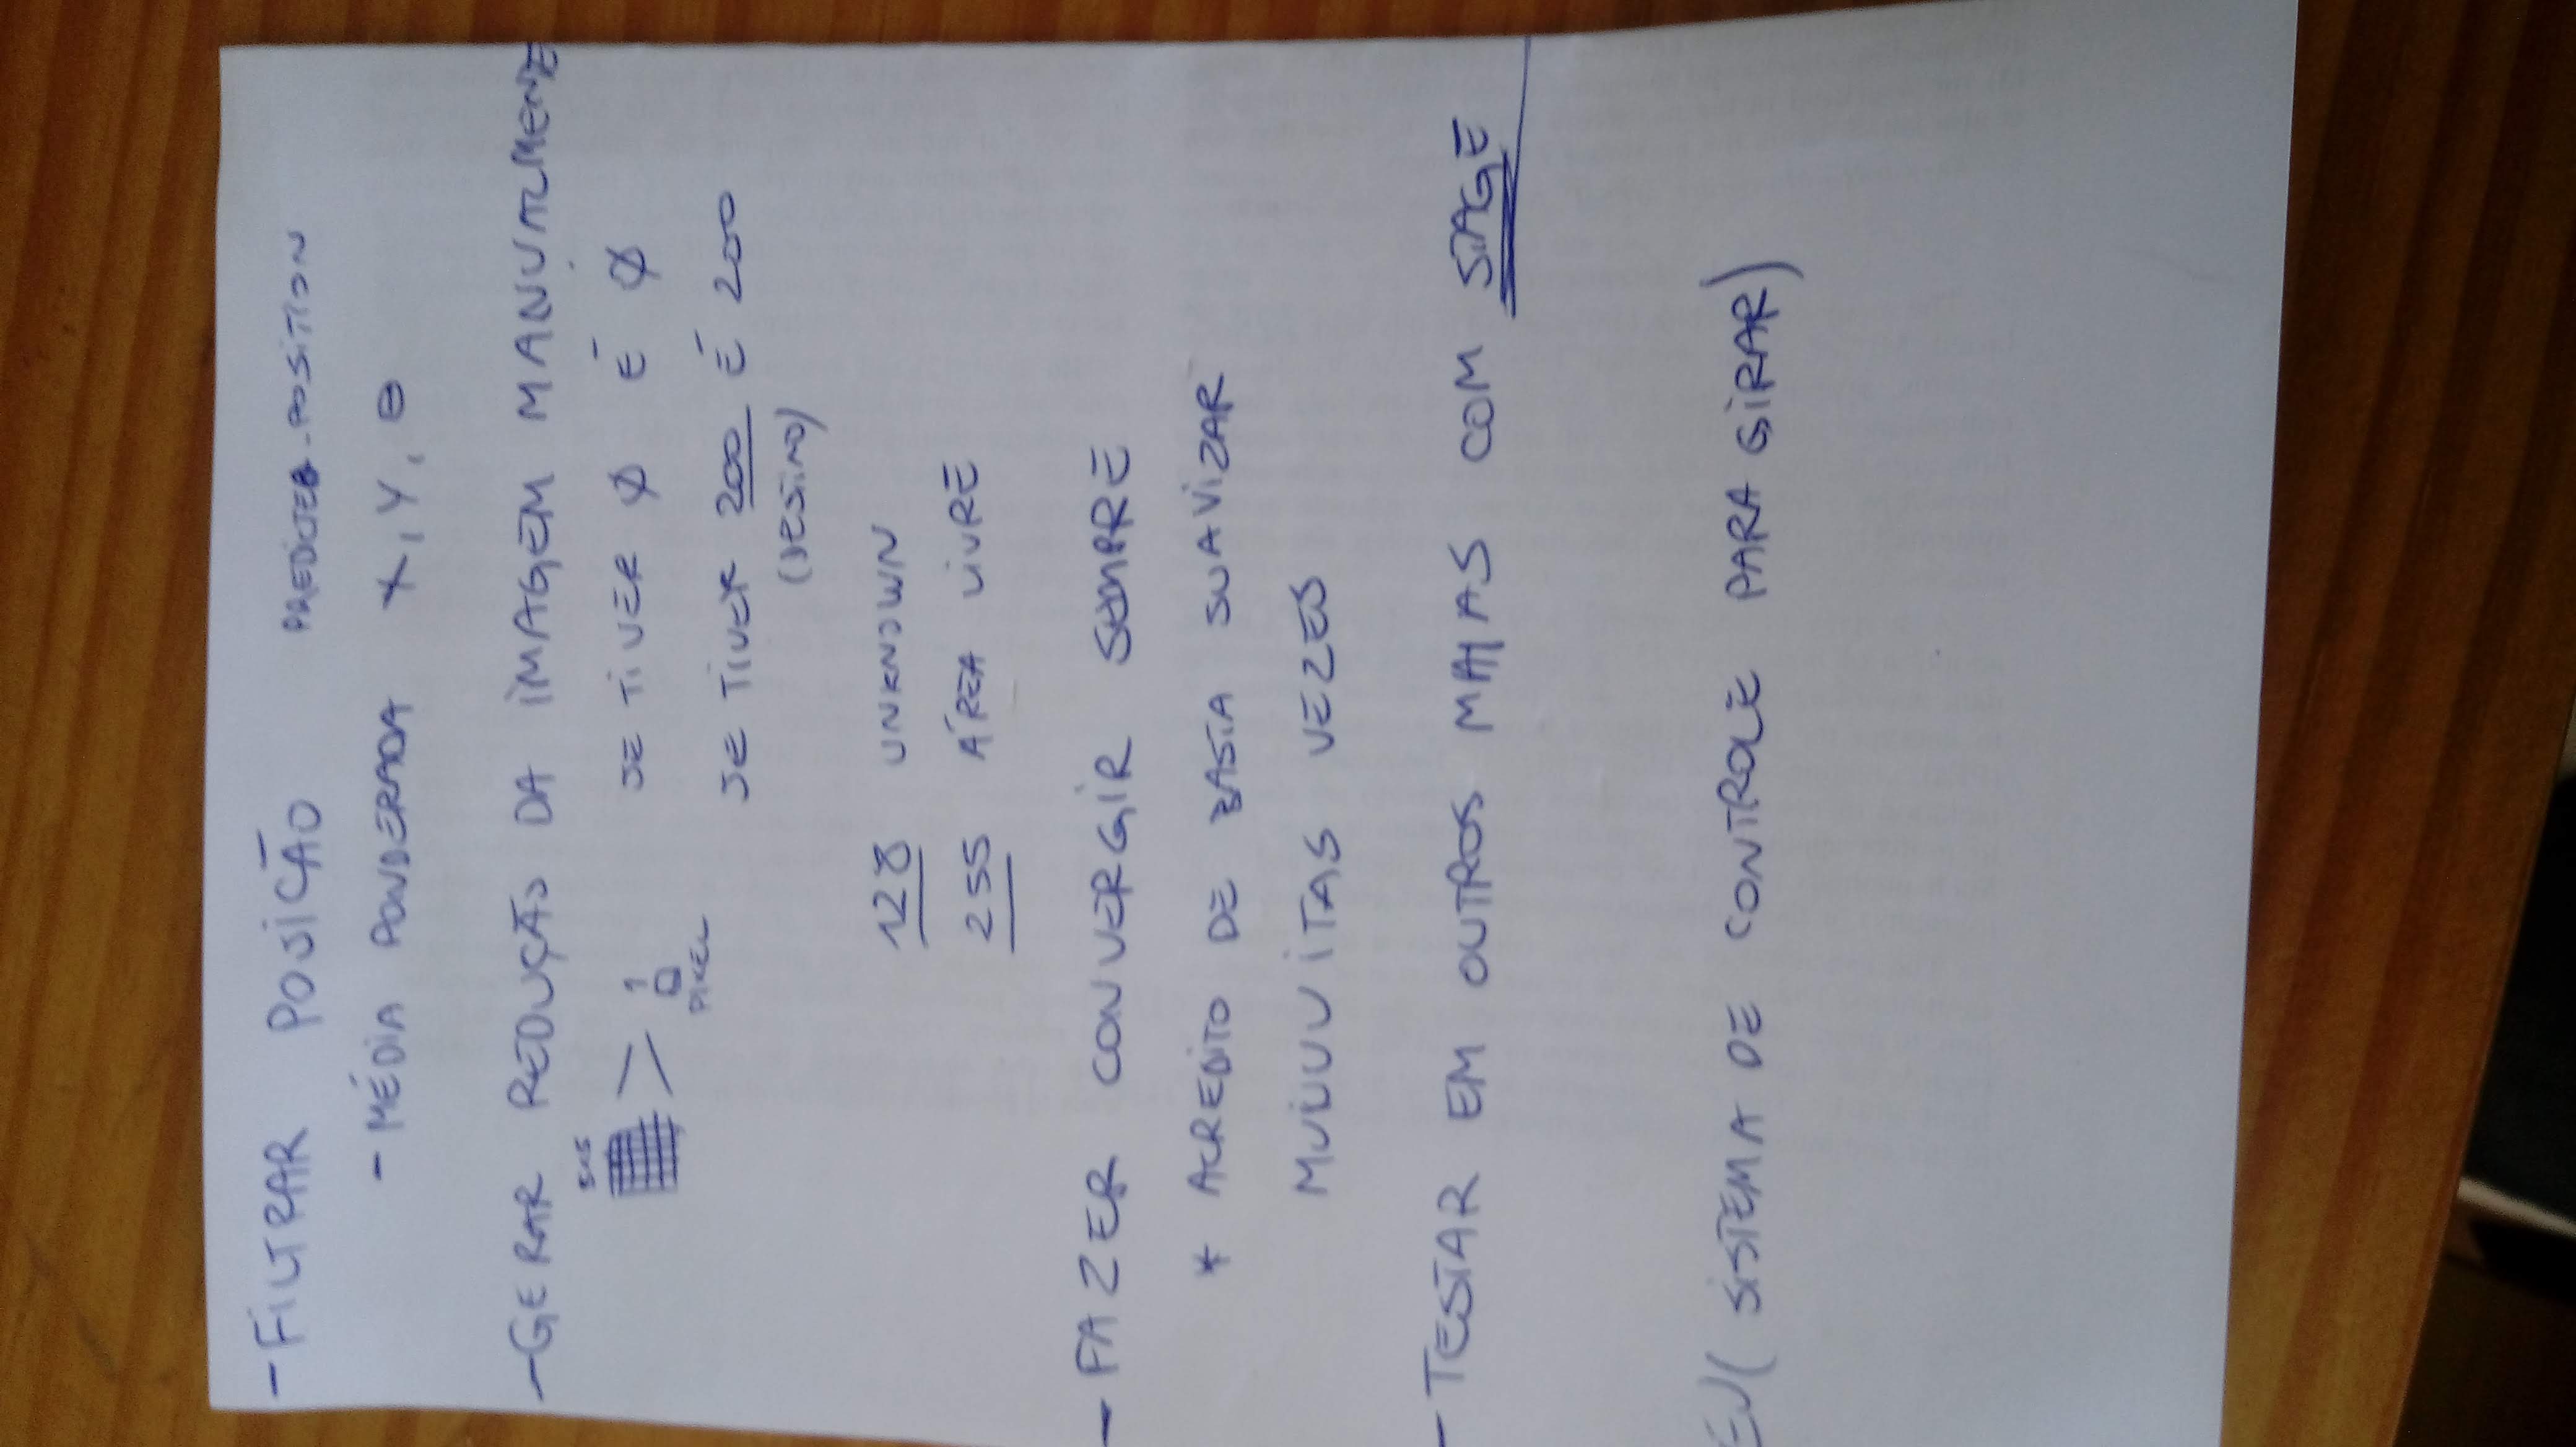 - FILTRAR POSIÇÃO PREDICTED_POSITION
- MÉDIA PONDERADA X, Y, θ
- GERAR REDUÇÃO DA IMAGEM MANUALMENTE
5x5
1
PIXEL
SE TIVER Ø É Ø
SE TIVER 200 É 200
(DESTINO)
128 UNKNOWN
255 ÁREA LIVRE
- FAZER CONVERGIR SEMPRE
* ACREDITO DE BASTA SUAVIZAR
MUUUUITAS VEZES
- TESTAR EM OUTROS MAPAS COM STAGE
(SISTEMA DE CONTROLE PARA GIRAR)